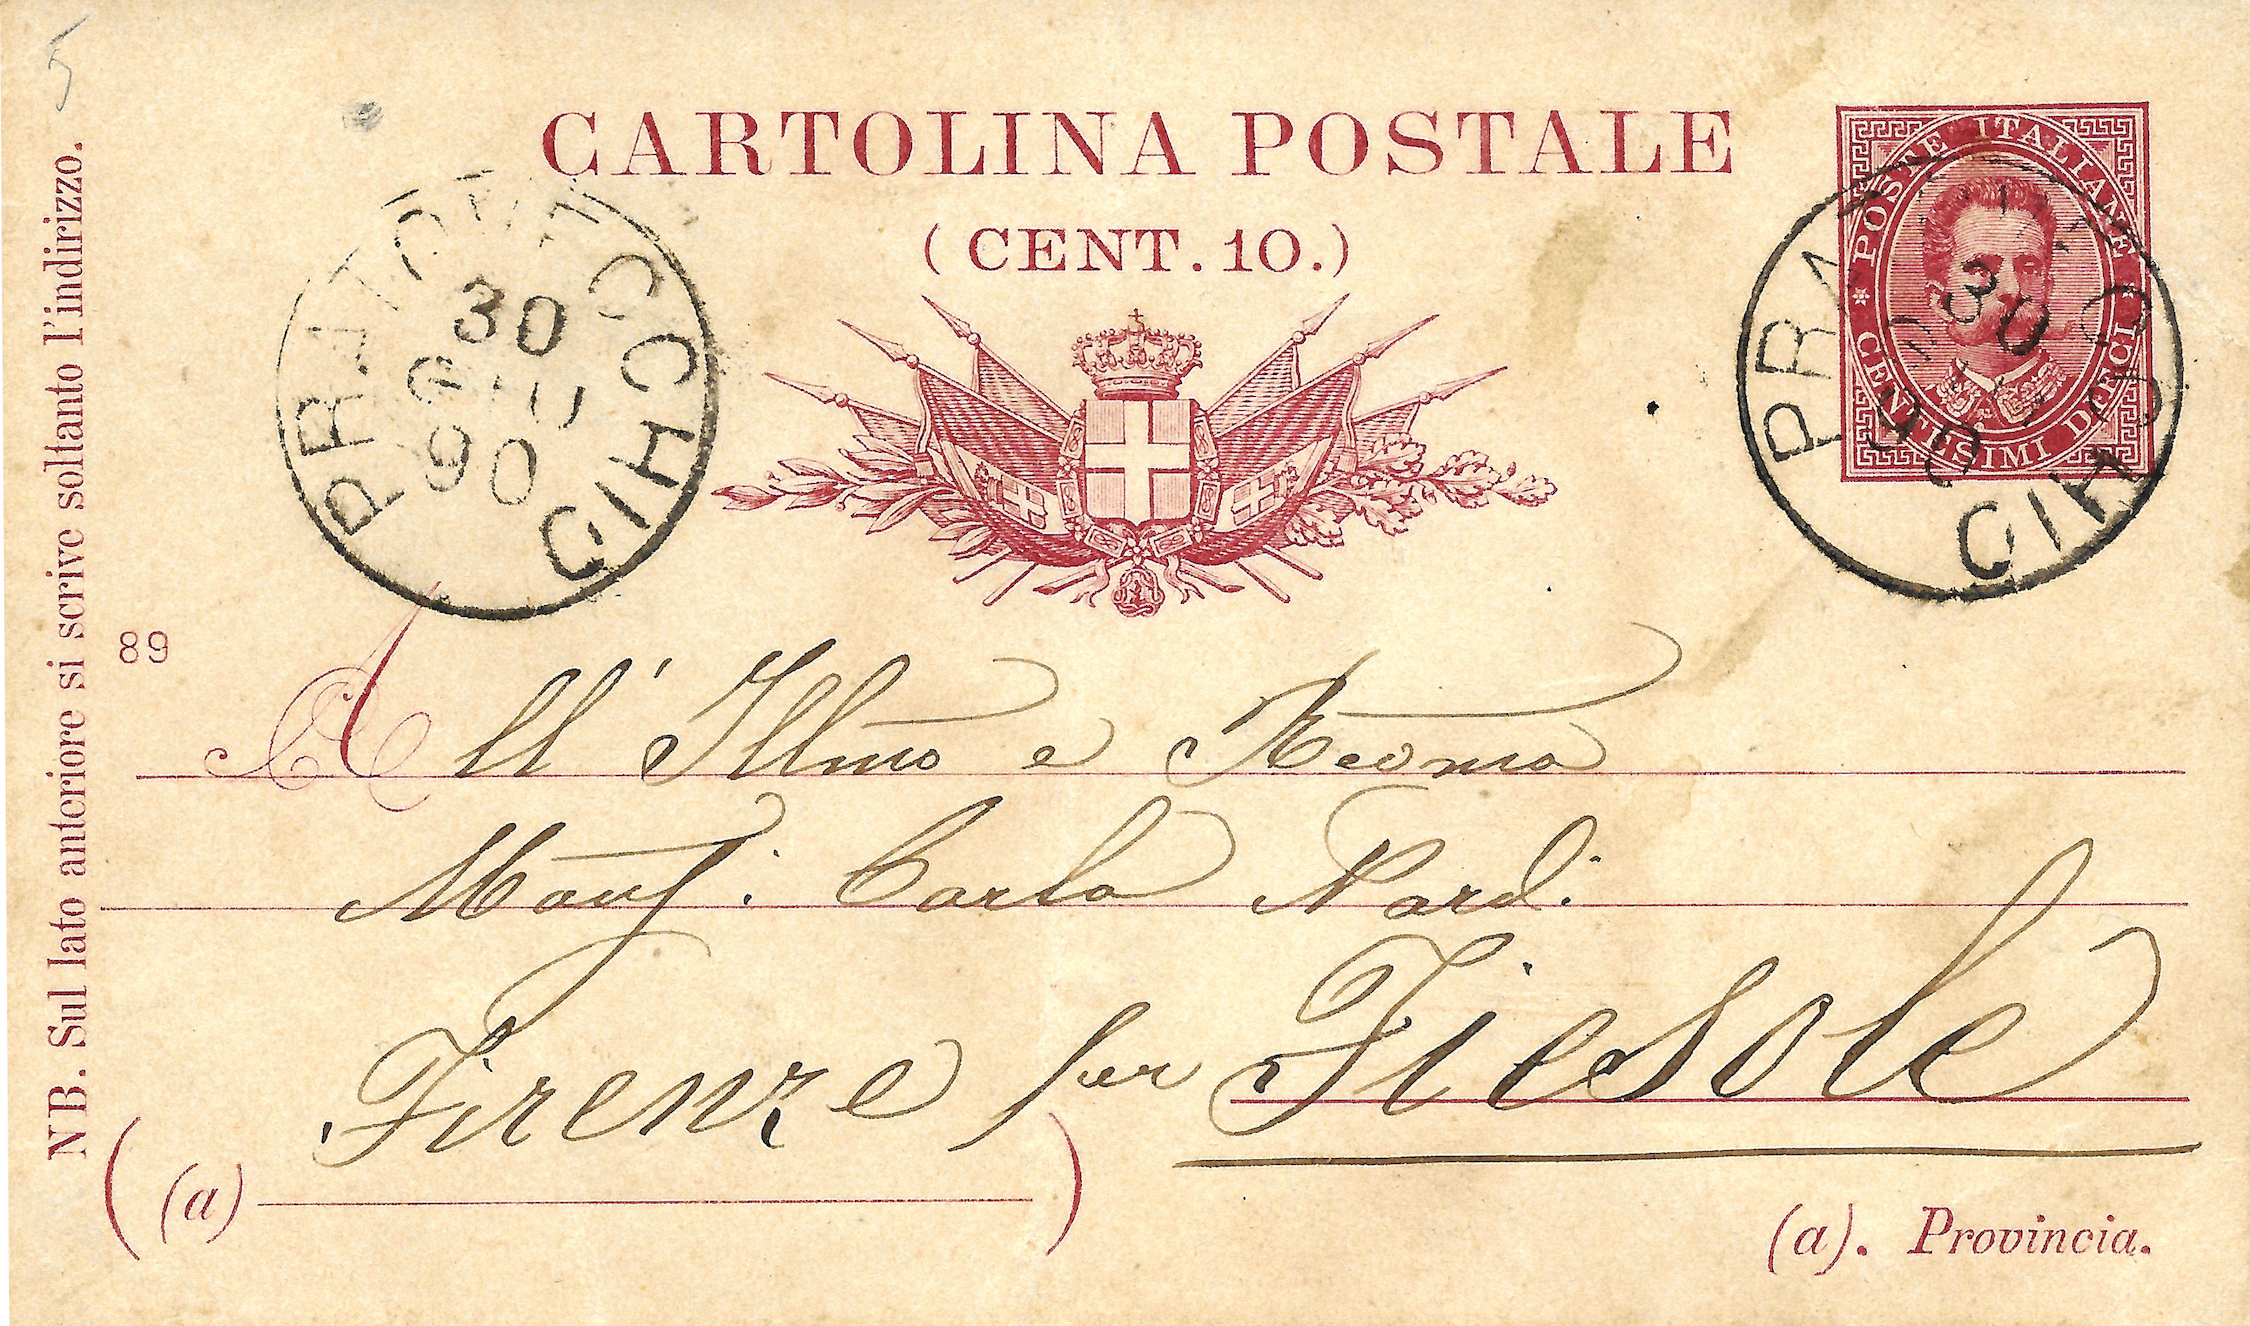 5
CARTOLINA POSTALE
(CENT. 10.)
POSTE ITALIANE
CENTESIMI DIECI
PRATOVECCHIO
30
90
PRATOVECCHIO
30
90
NB. Sul lato anteriore si scrive soltanto l'indirizzo.
89
All' Illmo e Revmo
Monsi. Carlo Nardi
Firenze per Fiesole
(a)
(a). Provincia.